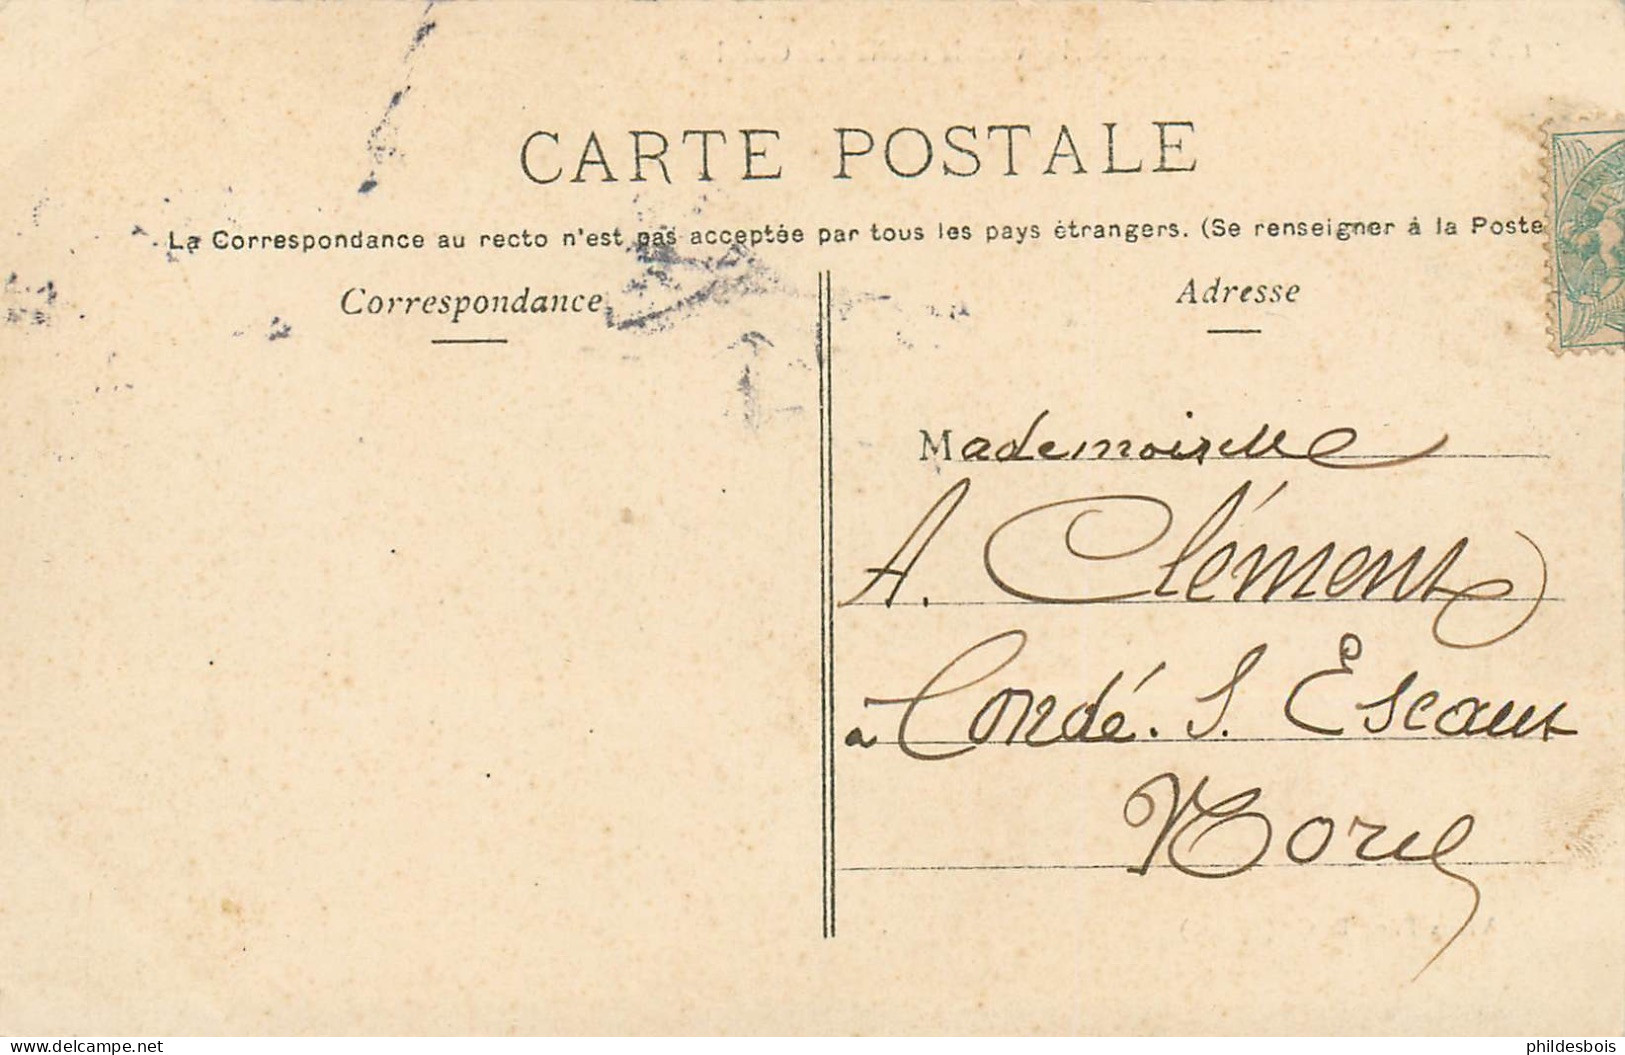 CARTE POSTALE
La Correspondance au recto n'est pas acceptée par tous les pays étrangers. (Se renseigner à la Poste
Correspondance
Adresse
Mademoiselle
A. Clément
à Condé. S. Escaut
Nord
www.delcampe.net
phildesbois